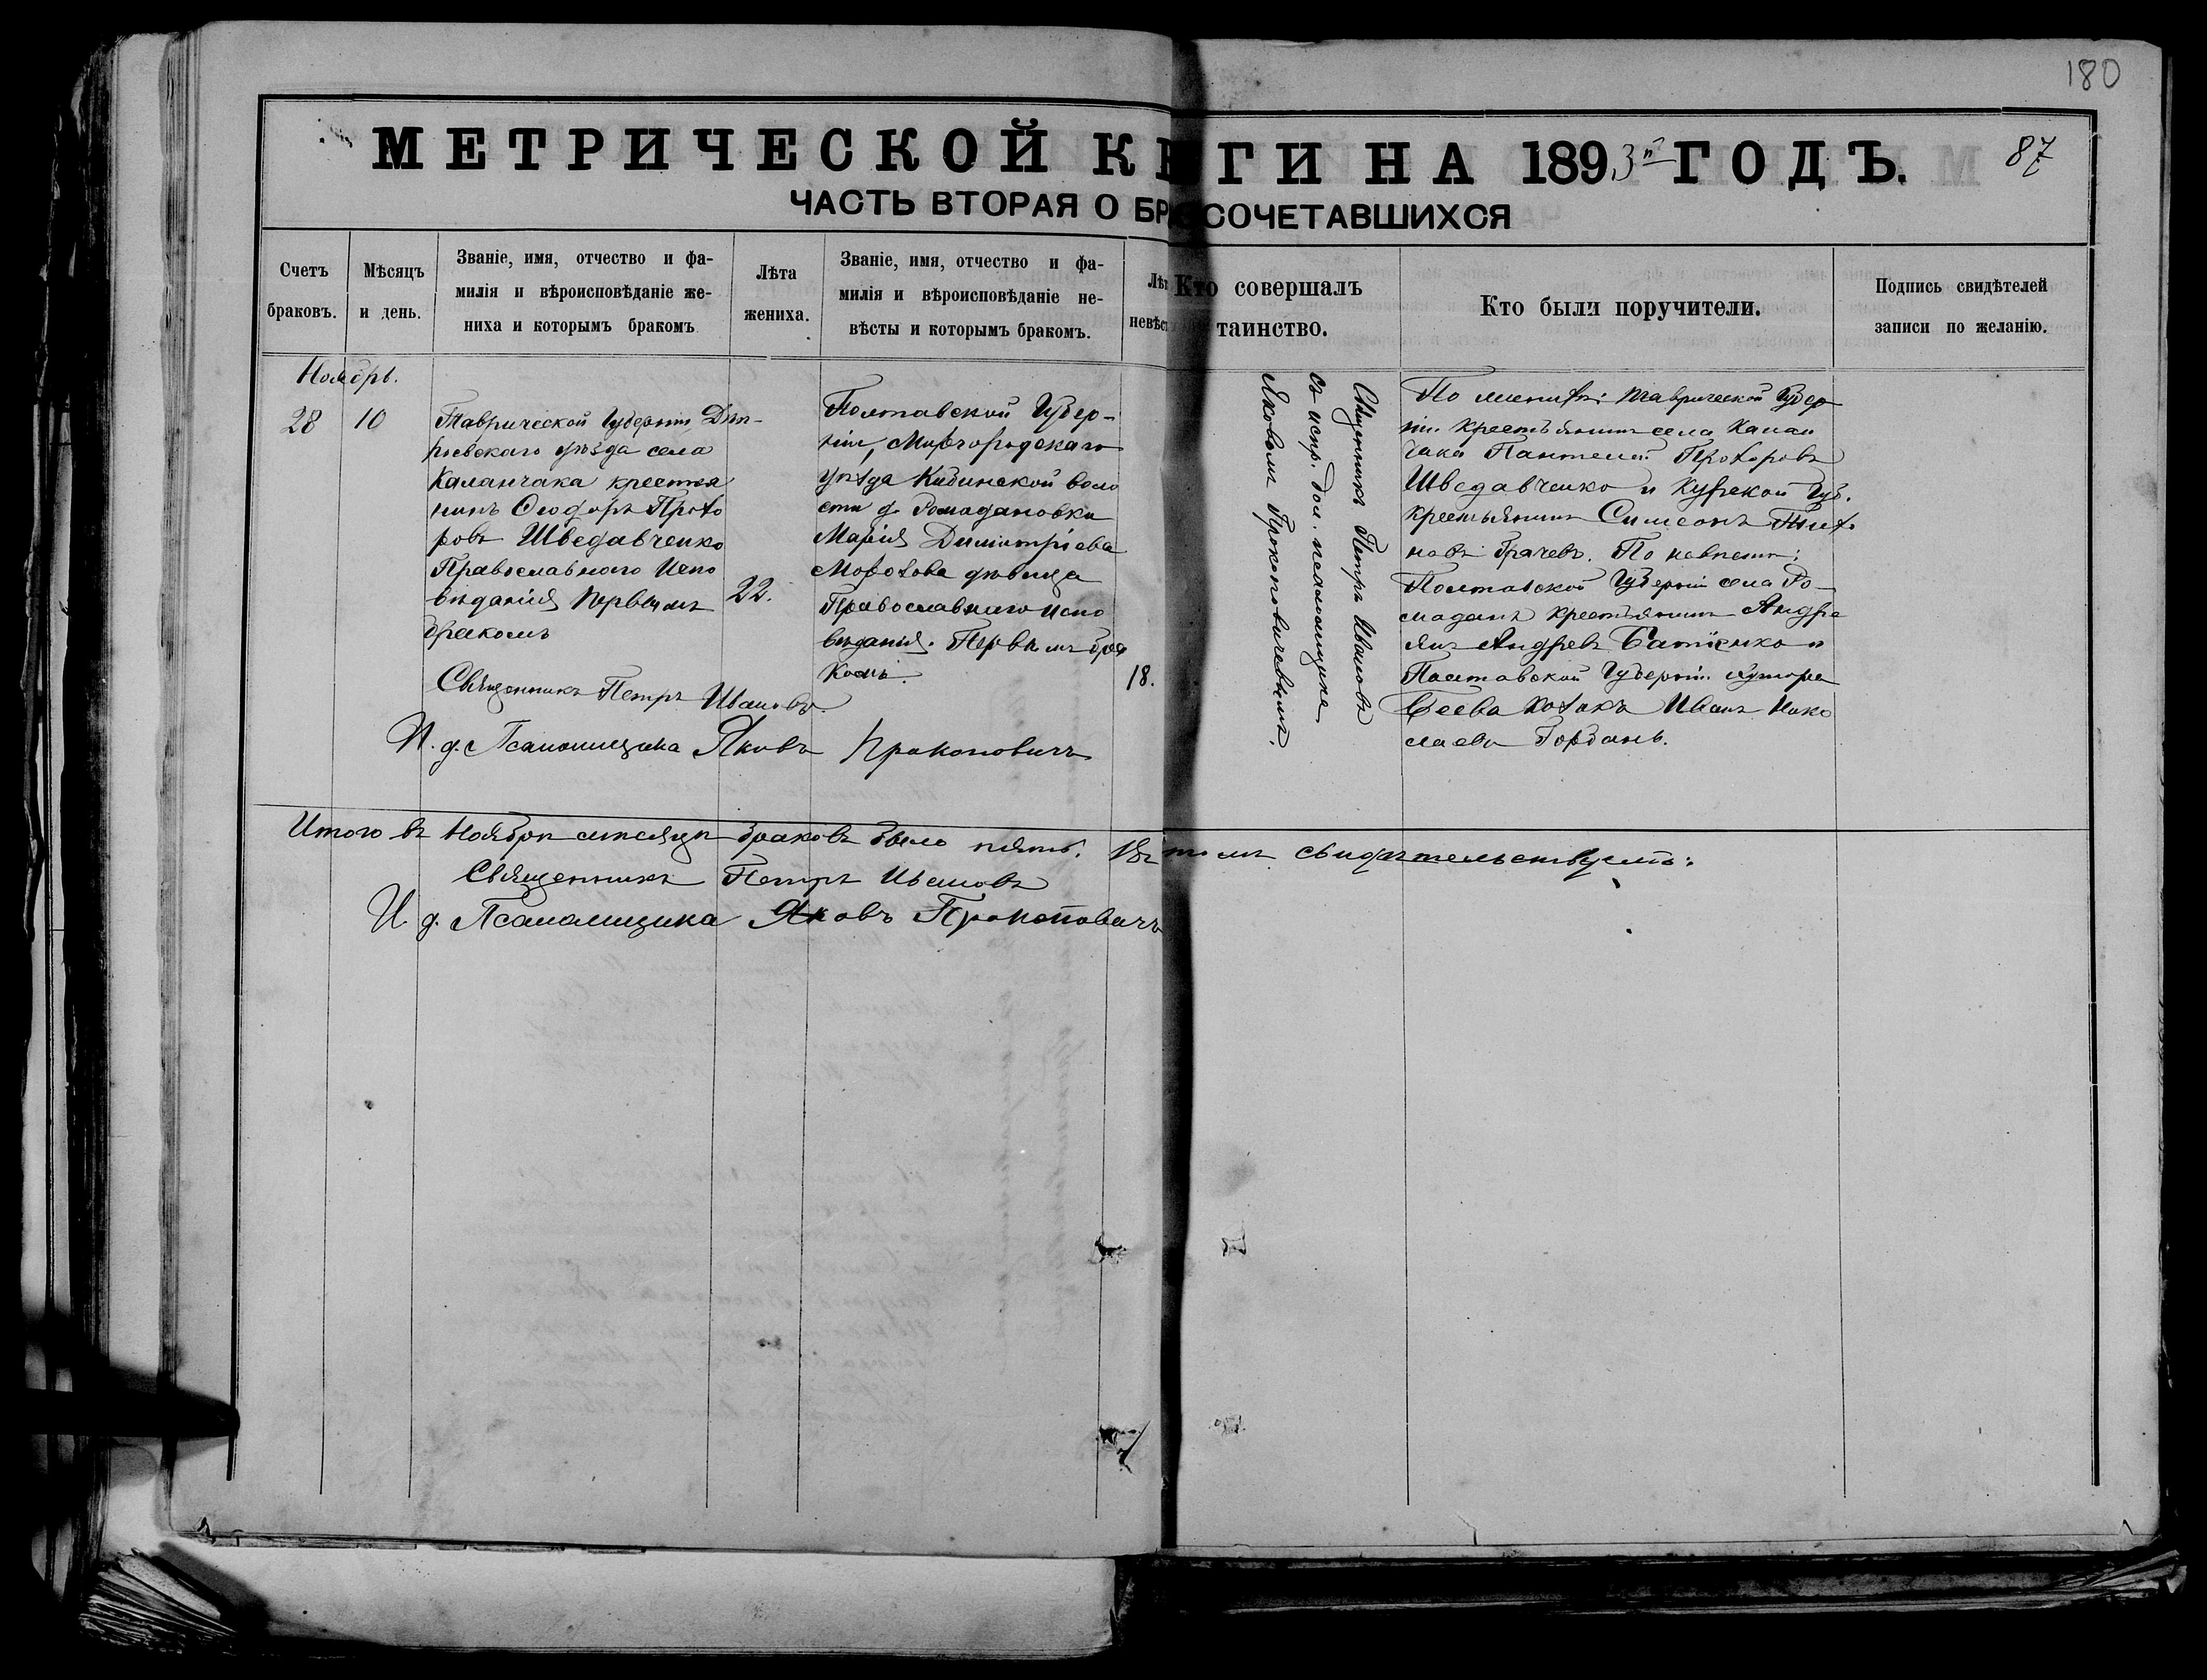 180
МЕТРИЧЕСКОЙ К ГИ НА 1893й ГОДЪ.
87
ЧАСТЬ ВТОРАЯ О БР СОЧЕТАВШИХСЯ
Счетъ
браковъ.
Мѣсяцъ
и день.
Званіе, имя, отчество и фа-
милія и вѣроисповѣданіе же-
ниха и которымъ бракомъ
Лѣта
жениха.
Званіе, имя, отчество и фа-
милія и вѣроисповѣданіе не-
вѣсты и которымъ бракомъ.
Лѣт
невѣс
Кто совершалъ
таинство.
Кто были поручители.
Подпись свидѣтелей
записи по желанію.
Ноябрь.
28
10
Таврической Губерніи Днѣ-
провскаго уѣзда села
Каланчака крестья
нинъ Ѳеодоръ Прохо
ровъ Шведавченко
Православнаго Испо
вѣданія первымъ
бракомъ
22.
Полтавской Губер-
ніи, Миргородскаго
уѣзда Кибинской воло
сти д. Ромадановки
Марія Димитріева
дѣвица
Православнаго испо
вѣданія. Первымъ бра
комъ.
18.
Священникъ Петръ Ивановъ
съ испр. дол. псаломщика
Яковомъ Прокоповичевымъ.
По женихѣ: Таврической Губер
ніи. крестьянинъ села Калан
чака Пантелей Прохоровъ
Шведавченко и Курской Губ.
крестьянинъ Симеонъ
новъ Грачевъ. По невѣстѣ:
Полтавской Губерніи села Ро-
маданъ крестьянинъ Андре
янъ Андреевъ и
Полтавской Губерніи. хутора
козакъ Иванъ Нико
лаевъ Горбань.
Священникъ Петръ Ивановъ.
И. д. Псаломщика Яковъ Прокоповичъ
Итого въ Ноябрѣ мѣсяцѣ браковъ было пять. Въ томъ свидѣтельствуемъ:
Священникъ Петръ Ивановъ
И. д. Псаломщика Яковъ Прокоповичъ